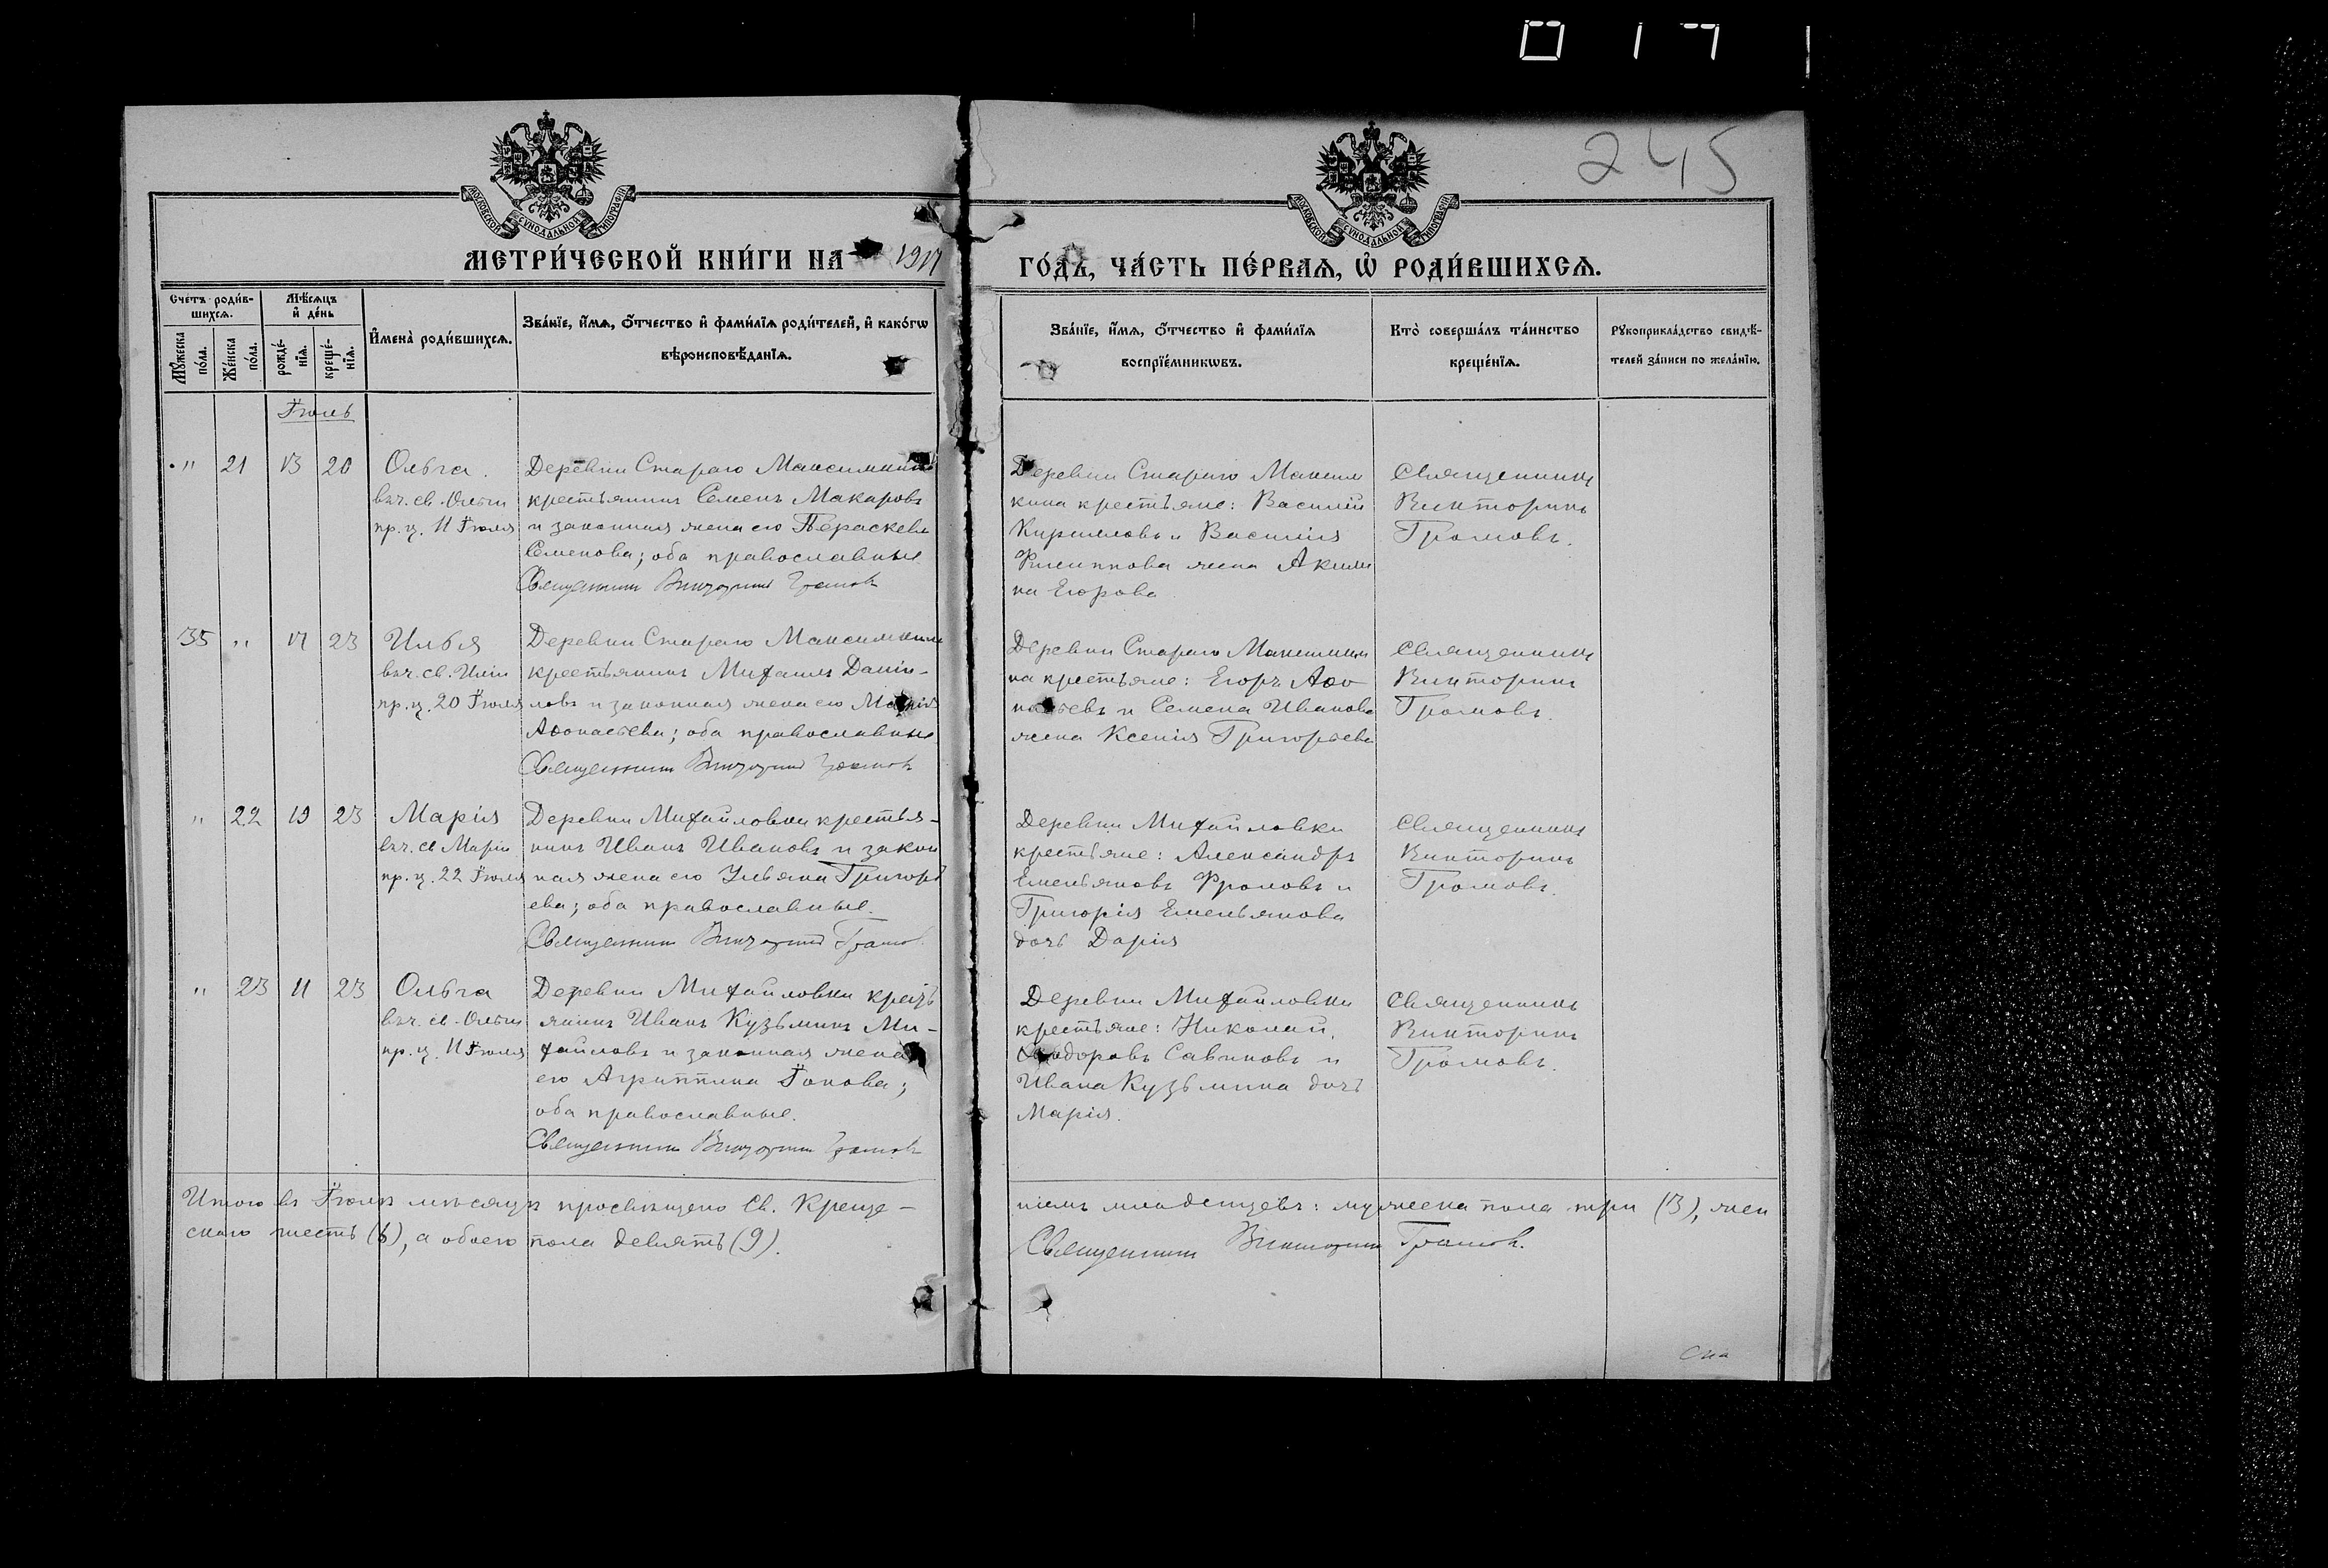 0 1 7
245
МОСКОВСКОЙ СѴНОДАЛЬНОЙ ТИПОГРАФІИ
МОСКОВСКОЙ СѴНОДАЛЬНОЙ ТИПОГРАФІИ
МЕТРИ́ЧЕСКОЙ КНИ́ГИ НА 1917
ГО́ДЪ, ЧА́СТЬ ПЕ́РВАЯ, Ѡ҆ РОДИ́ВШИХСЯ.
Сче́тъ роди́в-
шихсѧ.
Мꙋ́жеска
по́ла.
Же́нска
по́ла.
Мѣ́сѧцъ
и҆ де́нь
рожде́-
нїѧ.
креще́-
нїѧ.
И҆мена̀ роди́вшихсѧ.
Зва́нїе, и҆́мѧ, ѻ҆́тчество и҆ фами́лїѧ роди́телей, и҆ како́гѡ
вѣроисповѣ́данїѧ.
Зва́нїе, и҆́мѧ, ѻ҆́тчество и҆ фами́лїѧ
воспрїе́мникѡвъ.
Кто̀ соверша́лъ та́инство
креще́нїѧ.
Рꙋкоприкла́дство свидѣ́-
телей за́писи по жела́нїю.
Іюль
" 21 13 20
Ольга
въ ч. св. Ольги
пр. ц. 11 Іюля
Деревни Стараго Максимкина
крестьянинъ Семенъ Макаровъ
и законная жена его Параскева
Семенова; оба православные
Священникъ Викторинъ Громовъ
Деревни Стараго Максим
кина крестьяне: Василій
Кирилловъ и Василія
Филиппова жена Акили
на Егорова
Священникъ
Викторинъ
Громовъ.
35 " 17 23
Илья
въ ч. св. Иліи
пр. ц. 20 Іюля
Деревни Стараго Максимкина
крестьянинъ Михаилъ Даніи-
ловъ и законная жена его Марія
Аѳонасьева; оба православные
Священникъ Викторинъ Громовъ
Деревни Стараго Максимки
на крестьяне: Егоръ Аѳо
насьевъ и Семена Иванова
жена Ксенія Григорьева
Священникъ
Викторинъ
Громовъ.
" 22 19 23
Марія
въ ч. св Маріи
пр. ц. 22 Іюля
Деревни Михайловки крестья-
нинъ Иванъ Ивановъ и закон
ная жена его Ульяна Григорь
ева; оба православные.
Священникъ Викторинъ Громовъ
Деревни Михайловки
крестьяне: Александръ
Емельяновъ Фроловъ и
Григорія Емельянова
дочь Дарія
Священникъ
Викторинъ
Громовъ.
" 23 11 23
Ольга
въ ч. св. Ольги
пр. ц. 11 Іюля
Деревни Михайловки кресть
янинъ Иванъ Кузьминъ Ми-
хайловъ и законная жена
его Агриппина Іонова;
оба православные.
Священникъ Викторинъ Громовъ
Деревни Михайловки
крестьяне: Николай
Ѳеодоровъ Савиновъ и
Ивана Кузьмина дочь
Марія.
Священникъ
Викторинъ
Громовъ.
Итого въ Іюлѣ мѣсяцѣ просвѣщено Св. Креще-
ніемъ младенцевъ: мужеска пола три (3), жен
скаго шесть (6), а обоего пола девять (9).
Священникъ Викторинъ Громовъ.